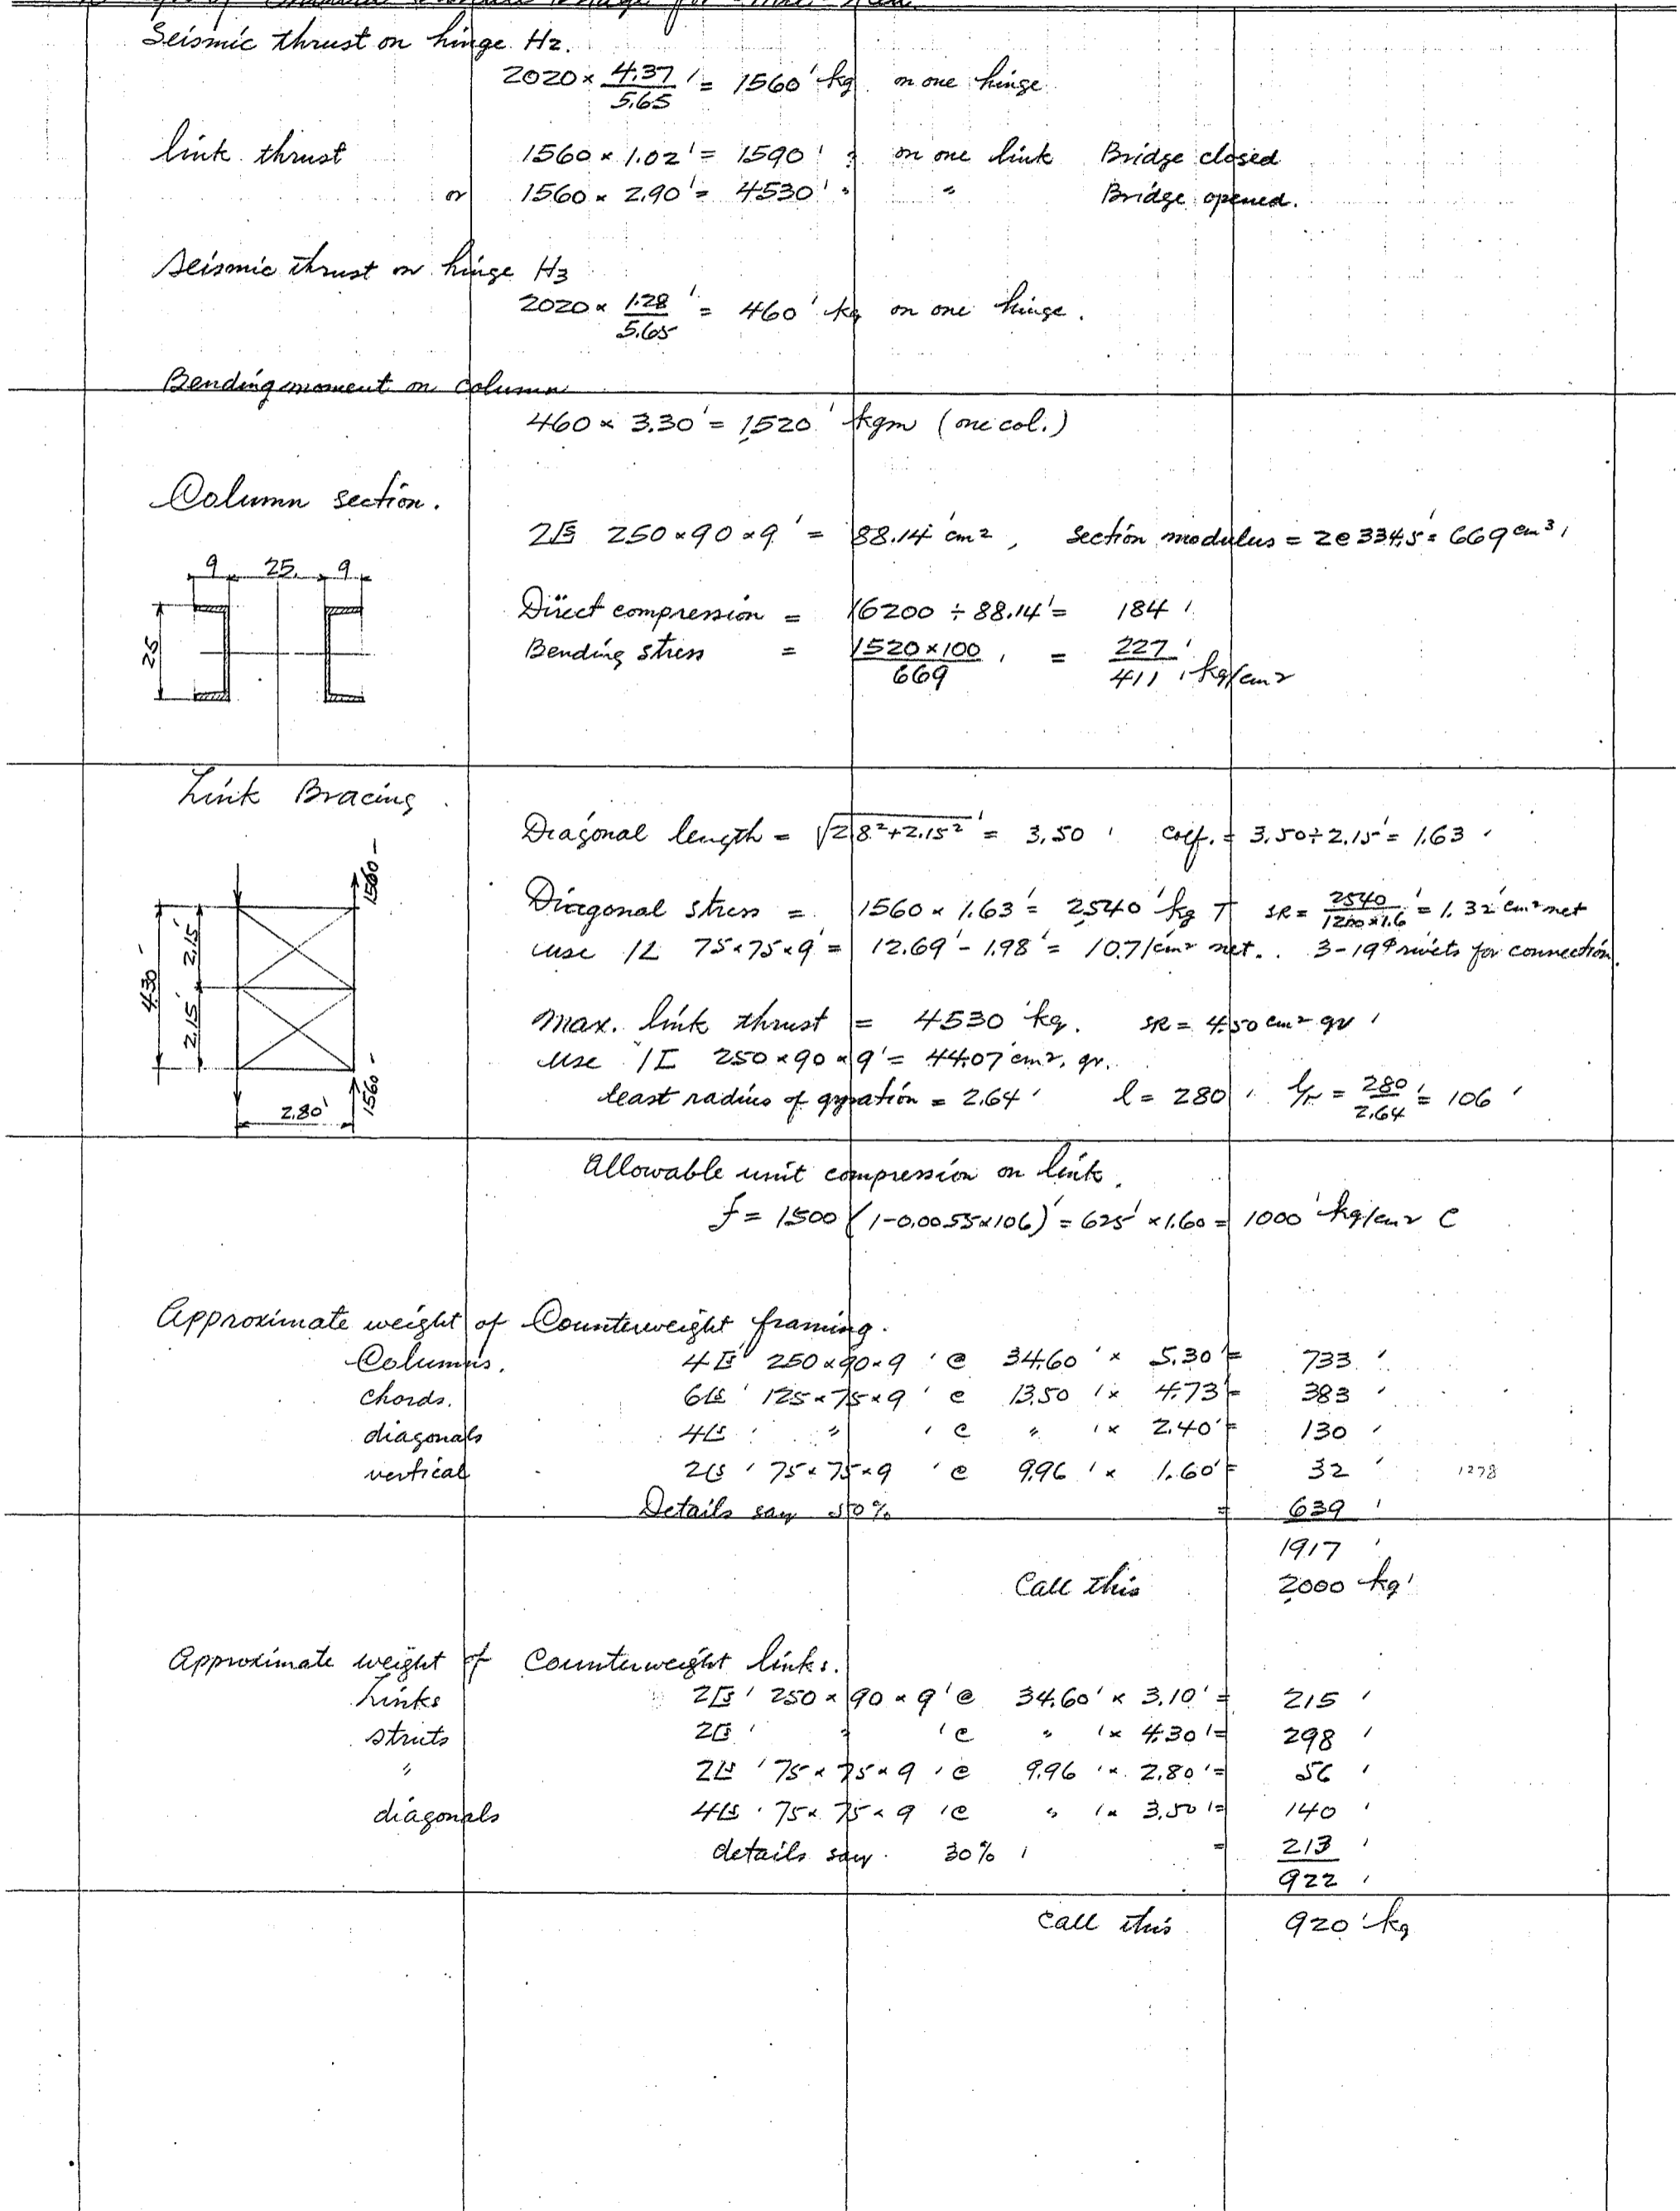 Seismic thrust on hinge H2.
2020 × 4.37/5.65 = 1560 kg on one hinge
link thrust 1560 × 1.02 = 1590 " on one link Bridge closed
or 1560 × 2.90 = 4530 " " Bridge opened.
Seismic thrust on hinge H3
2020 × 1.28/5.65 = 460 kg on one hinge.
Bending moment on column
460 × 3.30 = 1520 kgm (one col.)
Column section.
2[s 250×90×9 = 88.14 cm2, section modulus = 2@334.5 = 669 cm3
9 25 9
25
Direct compression = 16200 ÷ 88.14 = 184
Bending stress = 1520×100/669 = 227
411 kg/cm2
Link Bracing
Diagonal length = √2.8²+2.15² = 3.50 coef. = 3.50÷2.15 = 1.63
1560
4.30 2.15 2.15
2.80 1560
Diagonal stress = 1560 × 1.63 = 2540 kg T SR = 2540/1200×1.6 = 1.32 cm2 net
use 1L 75×75×9 = 12.69 - 1.98 = 10.71 cm2 net. 3-19φ rivets for connection.
Max. link thrust = 4530 kg. SR = 4.50 cm2 gr
use 1[ 250×90×9 = 44.07 cm2. gr.
least radius of gyration = 2.64 l = 280 l/r = 280/2.64 = 106
Allowable unit compression on link.
f = 1500 (1-0.0055×106) = 625 × 1.60 = 1000 kg/cm2 C
Approximate weight of Counterweight framing.
Columns. 4[s 250×90×9 @ 34.60 × 5.30 = 733
Chords. 6Ls 125×75×9 @ 13.50 × 4.73 = 383
diagonals 4Ls " @ " × 2.40 = 130
vertical 2Ls 75×75×9 @ 9.96 × 1.60 = 32 1278
Details say 50% = 639
1917
Call this 2000 kg
Approximate weight of Counterweight links.
Links 2[s 250×90×9 @ 34.60 × 3.10 = 215
struts 2[s " @ " × 4.30 = 298
" 2Ls 75×75×9 @ 9.96 × 2.80 = 56
diagonals 4Ls 75×75×9 @ " × 3.50 = 140
details say 30% = 213
922
Call this 920 kg